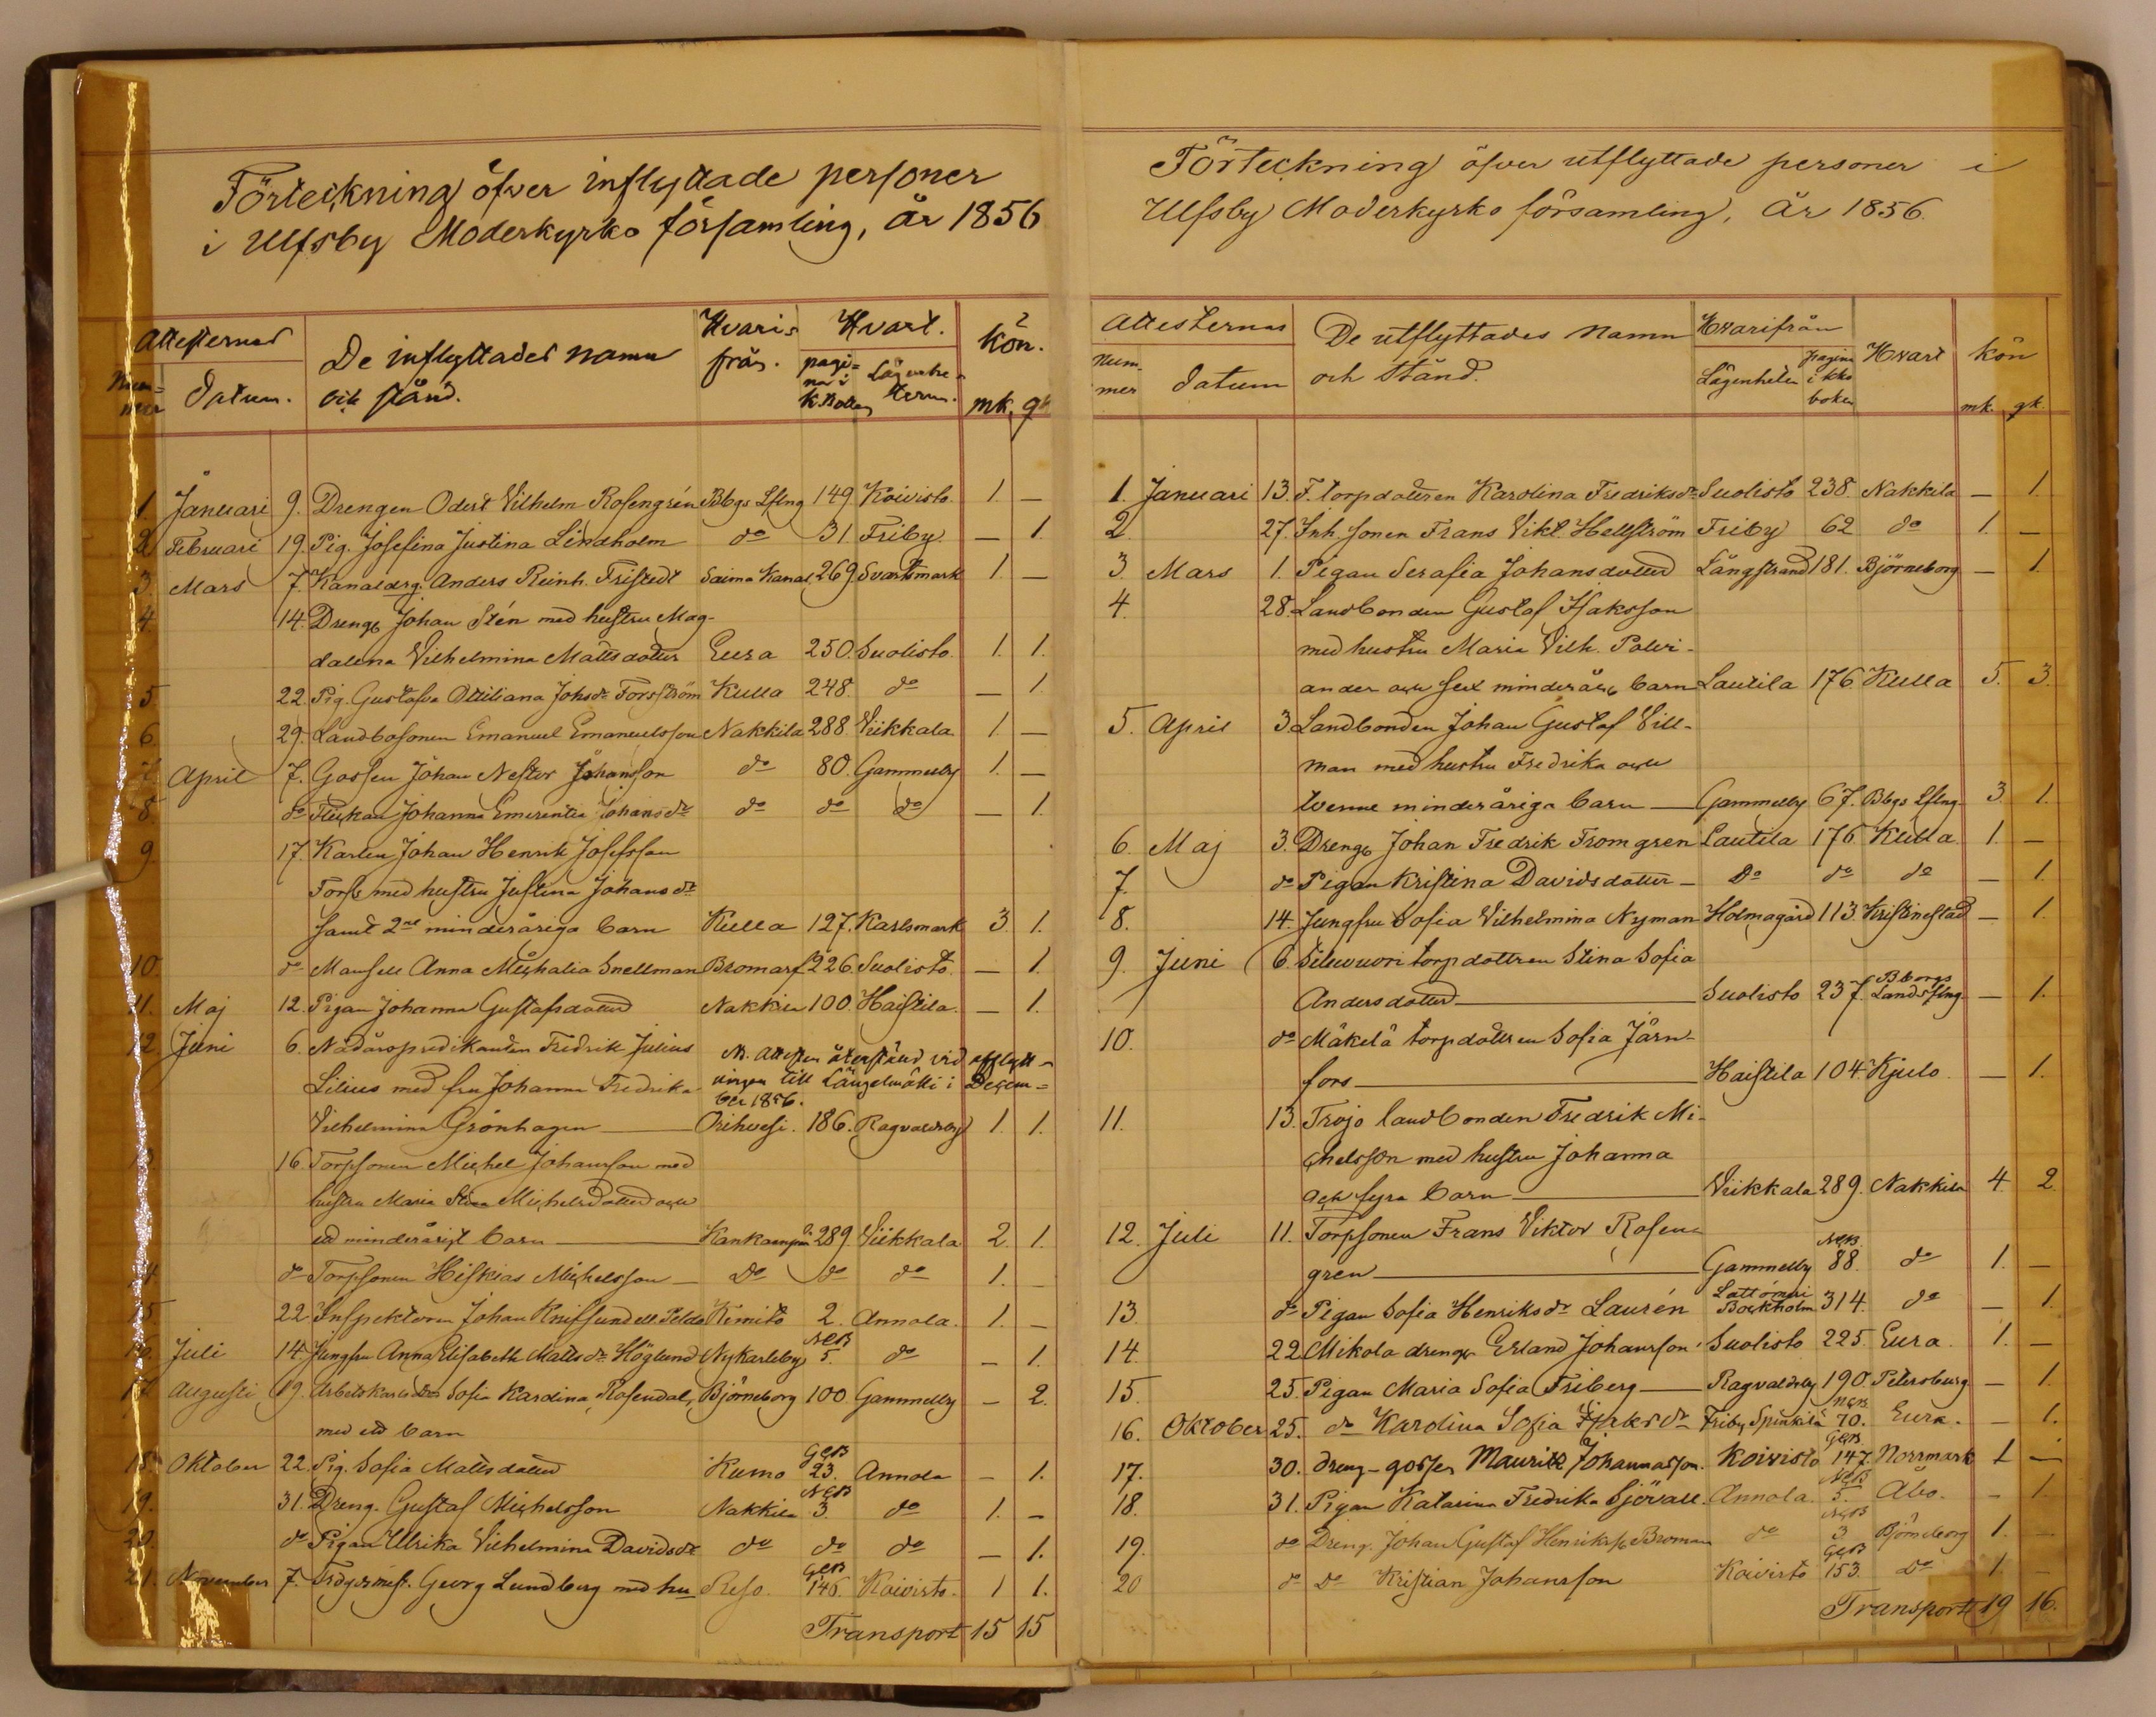 Förteckning öfver inflyttade personer
i Ulfsby Moderkyrko församling, år 1856
Attesternas De inflyttades namn Hvari= Hvart. kön.
Num= Datum. och stånd. från. pagi= Lägenhe=
mer na i terna.
K.Boken mk. qk
1. Januari 9. Drengen Odert Vilhelm Rosengrén Bbgs Lfsng 149. Koivisto. 1. —
2. Februari 19. Pig. Josefina Justina Lindholm do 31. Friby. — 1.
3. Mars 7. Kanaldrg. Anders Reinh. Fristedt Saima Kanal 269. Svartsmark 1. —
4. 14. Dreng. Johan Stén med hustru Mag-
dalena Vilhelmina Mattsdotter Eura 250. Suolisto. 1. 1.
5 22. Pig. Gustafva Ottiliana Johsdr Forsström Kulla 248. do — 1.
6. 29. Landbosonen Emanuel Emanuelsson Nakkila 288. Viikkala. 1. —
7. April 7. Gossen Johan Nestor Johansson do 80. Gammelby 1. —
8. do Flickan Johanna Emerentia Johansdr do do do — 1.
9. 17. Karlen Johan Henrik Josefsson
Torse med hustru Justina Johansdr
samt 2ne minderåriga barn Kulla 127. Karlsmark 3. 1.
10. do Mamsell Anna Michalia Snellman Bromarf 226. Suolisto. — 1.
11. Maj 12. Pigan Johanna Gustafsdotter Nakkila 100. Haistila. — 1.
12. Juni 6. Nådårspredikanten Fredrik Julius Nb. Attesten återställd vid afflytt-
Lilius med fru Johanna Fredrika ningen till Längelmäki i Decem=
ber 1856.
Vilhelmina Grönhagen — Orihvesi. 186. Ragvaldsby 1. 1.
13. 16. Torpsonen Michel Johansson med
hustru Maria Stina Michelsdotter och
ett minderårigt barn — Kankaanpää 289. Viikkala. 2. 1.
14. do Torpsonen Hiskias Michelsson — Do do do 1. —
15 22. Inspektoren Johan Knif Kimito 2. Annola. 1. —
16. Juli 14. Jungfru Anna Elisabeth Mattsdr Höglund Nykarleby NCB 5. do — 1.
17. Augusti 19. Arbetskarls Sofia Karolina Rosendal, Björneborg 100. Gammelby — 2.
med ett barn
18. Oktober 22. Pig. Sofia Mattsdotter Kumo GCB 23. Annola — 1.
19. 31. Dreng. Gustaf Michelsson Nakkila NCB 3. do 1. —
20. do Pigan Ulrika Vilhelmina Davidsdr do do do — 1.
21. November 7. Trdgsmest. Georg Lundberg med hu Reso. GCB 146. Koivisto. 1 1.
Transport 15 15
Förteckning öfver utflyttade personer i
Ulfsby Moderkyrko församling, år 1856.
Attesternas De utflyttades namn Hvarifrån Hvart kön
Num- Datum och stånd. Lägenheten pagina
mer i kko
boken mk. qk.
1. Januari 13. F. torpdottren Karolina Fredriksdr Suolisto 238. Nakkila — 1.
2. 27. Inh. sonen Frans Vikt. Hellström Friby 62 do 1. —
3. Mars 1. Pigan Serafia Johansdotter Långstrand 181. Björneborg — 1.
4. 28. Landbonden Gustaf Isaksson
med hustru Maria Vilh. Polvi-
ander och sex minderåriga barn Lautila 176 Kulla 5. 3.
5. April 3. Landbonden Johan Gustaf Vill-
man med hustru Fredrika och
tvenne minderåriga barn — Gammelby 67. Bbgs Lfsng. 3. 1.
6. Maj 3. Dreng. Johan Fredrik Fromgren Lautila 176 Kulla. 1. —
7. do Pigan Kristina Davidsdotter — Do do do — 1.
8. 14. Jungfru Sofia Vilhelmina Nyman Holmagård 113. Kristinestad — 1.
9. Juni 6. Siluvuori torpdottren Stina Sofia
Andersdotter — Suolisto 237. Bborgs Landsfsng. — 1.
10. do Mäkelä torpdottren Sofia Järn-
fors — Haistila 104. Kjulo. — 1.
11. 13. Trojo landbonden Fredrik Mi-
chelsson med hustru Johanna
och fyra barn — Viikkala 289. Nakkila 4. 2.
12. Juli 11. Torpsonen Frans Viktor Rosen-
gren — Gammelby NCB 88. do 1. —
13. do Pigan Sofia Henriksdr Laurén Lattomeri Bockholm 314. do — 1.
14. 22. Mikola drengen Erland Johansson Suolisto 225. Eura. 1. —
15. 25. Pigan Maria Sofia Friberg — Ragvaldsby 190. Petersburg — 1.
16. Oktober 25. do Karolina Sofia Isaksdr Friby, Spinkilä NCB 70. Eura. — 1.
17. 30. dreng-gossen Maurits Johannasson. Koivisto GCB 147. Norrmark 1 —
18. 31. Pigan Katarina Fredrika Sjövall. Annola. NCB 5. Åbo. — 1.
19. do Dreng. Johan Gustaf Henrikss. Broman do NCB 3 Björneborg 1. —
20 do Do Kristian Johansson Koivisto GCB 153. Do 1. —
Transport 19 16.